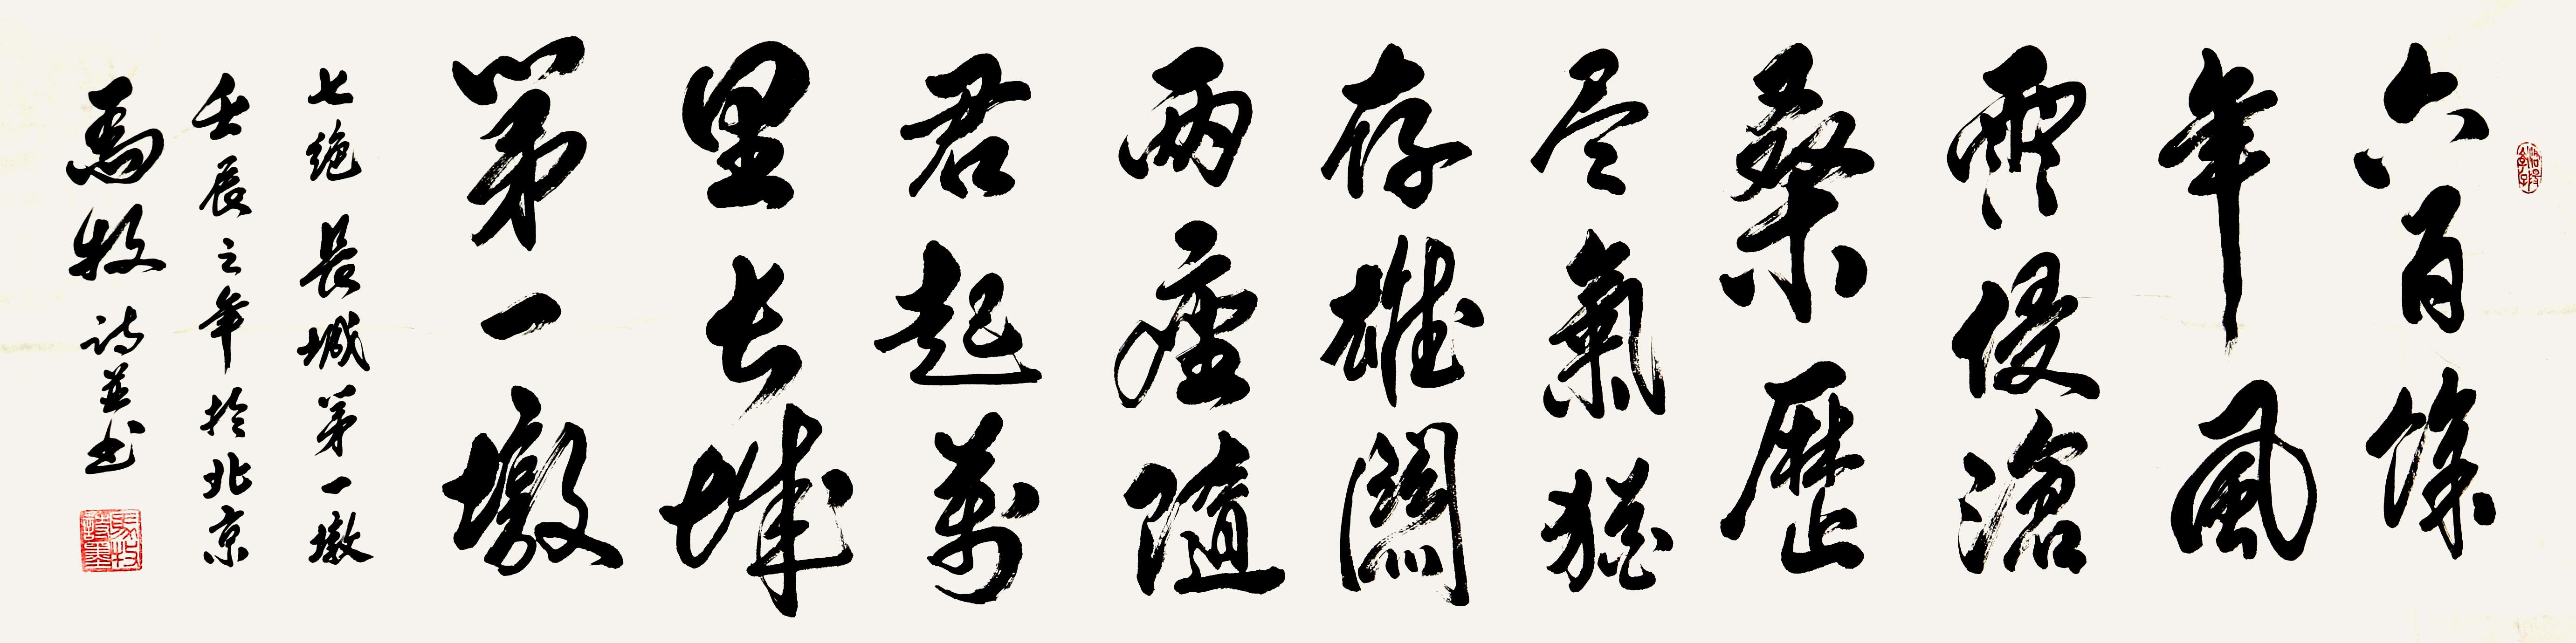 六百餘
年風
雨侵滄
桑歷
尽氣猶
存雄關
兩座隨
君起萬
里长城
第一墩
七绝 長城第一墩
壬辰之年於北京
馬牧 诗並书